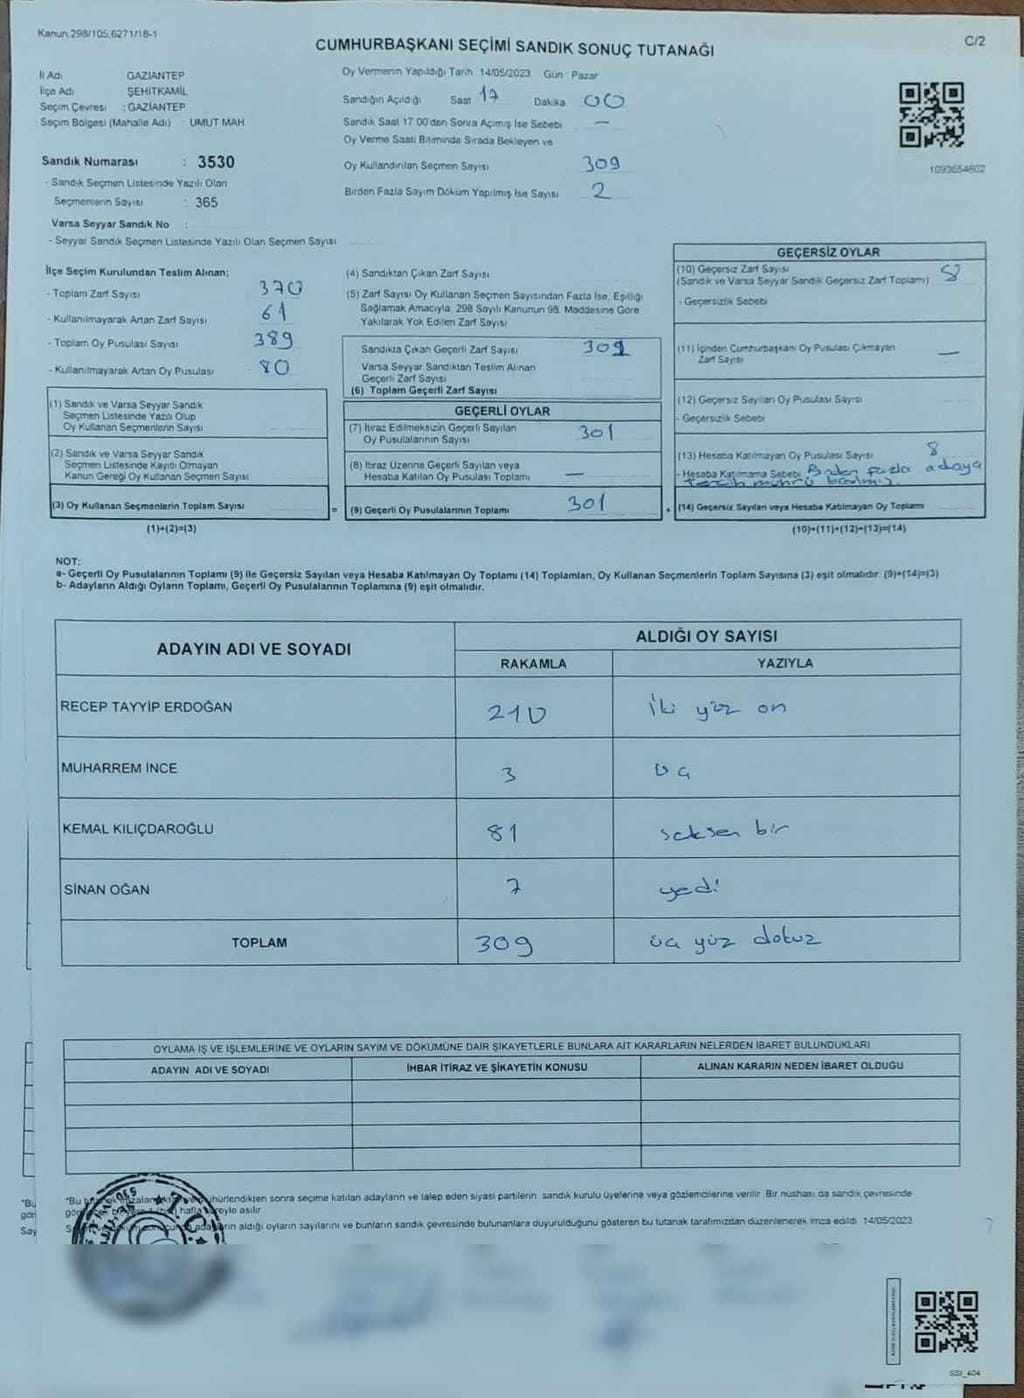 Kanun 298/105,6271/18-1
C/2
CUMHURBAŞKANI SEÇİMİ SANDIK SONUÇ TUTANAĞI
İl Adı GAZİANTEP
İlçe Adı ŞEHİTKAMİL
Seçim Çevresi : GAZİANTEP
Seçim Bölgesi (Mahalle Adı) : UMUT MAH.
Oy Vermenin Yapıldığı Tarih 14/05/2023 Gün Pazar
Sandığın Açıldığı Saat 17 Dakika 00
Sandık Saat 17.00'den Sonra Açılmış İse Sebebi —
Oy Verme Saati Bitiminde Sırada Bekleyen ve
Oy Kullandırılan Seçmen Sayısı 309
Birden Fazla Sayım Döküm Yapılmış İse Sayısı 2
1093654602
Sandık Numarası : 3530
- Sandık Seçmen Listesinde Yazılı Olan
Seçmenlerin Sayısı : 365
Varsa Seyyar Sandık No :
- Seyyar Sandık Seçmen Listesinde Yazılı Olan Seçmen Sayısı
İlçe Seçim Kurulundan Teslim Alınan;
- Toplam Zarf Sayısı 370
- Kullanılmayarak Artan Zarf Sayısı 61
- Toplam Oy Pusulası Sayısı 389
- Kullanılmayarak Artan Oy Pusulası 80
(1) Sandık ve Varsa Seyyar Sandık
Seçmen Listesinde Yazılı Olup
Oy Kullanan Seçmenlerin Sayısı
(2) Sandık ve Varsa Seyyar Sandık
Seçmen Listesinde Kayıtlı Olmayan
Kanun Gereği Oy Kullanan Seçmen Sayısı
(3) Oy Kullanan Seçmenlerin Toplam Sayısı
(1)+(2)=(3)
=
(4) Sandıktan Çıkan Zarf Sayısı
(5) Zarf Sayısı Oy Kullanan Seçmen Sayısından Fazla İse, Eşitliği
Sağlamak Amacıyla 298 Sayılı Kanunun 98. Maddesine Göre
Yakılarak Yok Edilen Zarf Sayısı
Sandıkta Çıkan Geçerli Zarf Sayısı 309
Varsa Seyyar Sandıktan Teslim Alınan
Geçerli Zarf Sayısı
(6) Toplam Geçerli Zarf Sayısı
GEÇERLİ OYLAR
(7) İtiraz Edilmeksizin Geçerli Sayılan
Oy Pusulalarının Sayısı 301
(8) İtiraz Üzerine Geçerli Sayılan veya
Hesaba Katılan Oy Pusulası Toplamı —
(9) Geçerli Oy Pusulalarının Toplamı 301
+
GEÇERSİZ OYLAR
(10) Geçersiz Zarf Sayısı 8
(Sandık ve Varsa Seyyar Sandık Geçersiz Zarf Toplamı)
- Geçersizlik Sebebi
(11) İçinden Cumhurbaşkanı Oy Pusulası Çıkmayan
Zarf Sayısı —
(12) Geçersiz Sayılan Oy Pusulası Sayısı
- Geçersizlik Sebebi
(13) Hesaba Katılmayan Oy Pusulası Sayısı 8
- Hesaba Katılmama Sebebi Birden fazla adaya
tercih mührü basılmış.
(14) Geçersiz Sayılan veya Hesaba Katılmayan Oy Toplamı
(10)+(11)+(12)+(13)=(14)
NOT:
a- Geçerli Oy Pusulalarının Toplamı (9) ile Geçersiz Sayılan veya Hesaba Katılmayan Oy Toplamı (14) Toplamları, Oy Kullanan Seçmenlerin Toplam Sayısına (3) eşit olmalıdır. (9)+(14)=(3)
b- Adayların Aldığı Oyların Toplamı, Geçerli Oy Pusulalarının Toplamına (9) eşit olmalıdır.
ADAYIN ADI VE SOYADI ALDIĞI OY SAYISI
RAKAMLA YAZIYLA
RECEP TAYYİP ERDOĞAN 210 iki yüz on
MUHARREM İNCE 3 üç
KEMAL KILIÇDAROĞLU 81 seksen bir
SİNAN OĞAN 7 yedi
TOPLAM 309 üç yüz dokuz
OYLAMA İŞ VE İŞLEMLERİNE VE OYLARIN SAYIM VE DÖKÜMÜNE DAİR ŞİKAYETLERLE BUNLARA AİT KARARLARIN NELERDEN İBARET BULUNDUKLARI
ADAYIN ADI VE SOYADI İHBAR İTİRAZ VE ŞİKAYETİN KONUSU ALINAN KARARIN NEDEN İBARET OLDUĞU
"Bu mühürlendikten sonra seçime katılan adayların ve talep eden siyasi partilerin sandık kurulu üyelerine veya gözlemcilerine verilir. Bir nüshası da sandık çevresinde
hafta süreyle asılır.
adayların aldığı oyların sayılarını ve bunların sandık çevresinde bulunanlara duyurulduğunu gösteren bu tutanak tarafımızdan düzenlenerek imza edildi. 14/05/2023
SSI_404